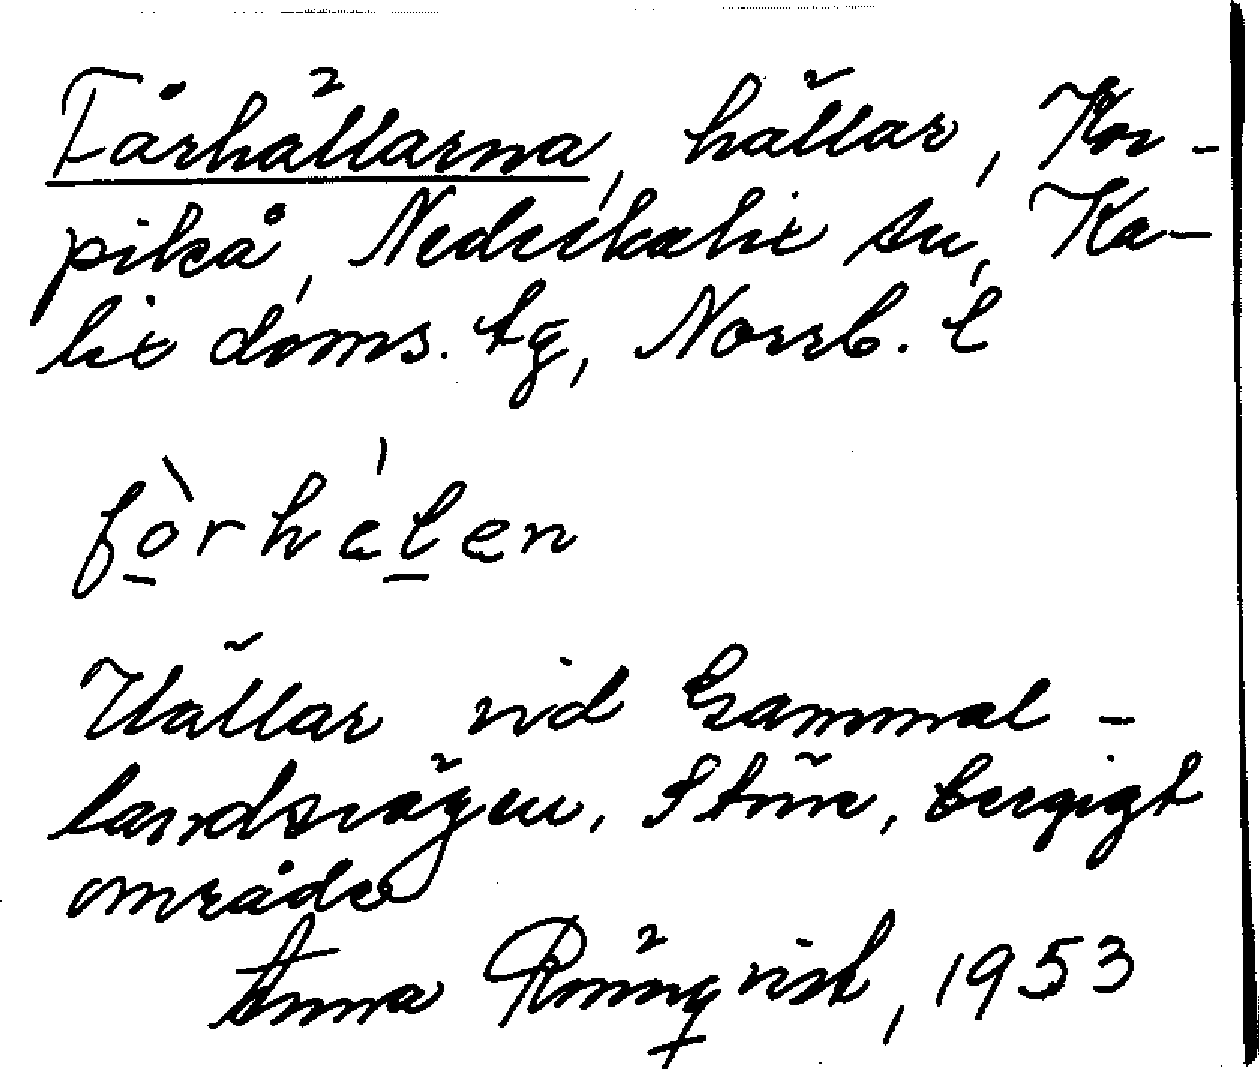 Fårhällarna, hällar, Kor-
pikå, Nederkalix sn, Ka-
lix doms. tg, Norrb. l
fòrhélen
Hällar vid Gammal-
landsvägen. Större, bergigt
område
Anna Rönnqvist, 1953